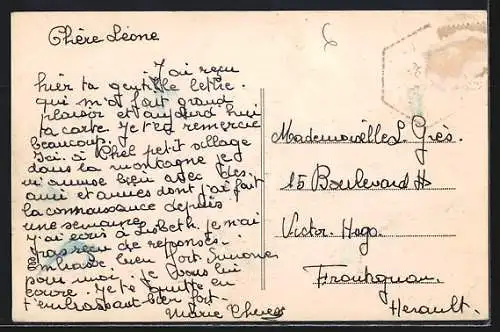 Chère Léone
J'ai reçu
hier ta gentille lettre.
qui m'a fait grand
plaisir et aujourd'hui
ta carte. Je t'en remercie
beaucoup.
Ici. si chel petit village
dans la montagne je
m'amuse bien avec des
ami et amies dont j'ai fait
la connaissance depuis
une semaine.
J'ai écris à Lisbeth je n'ai
pas reçu de reponses.
Embrasse bien fort Simone
pour moi. Je vous lui
écrire. Je te quitte en
t'embrassant bien fort.
Marie
Mademoiselle L Gres.
15 Boulevard
Victor. Hugo.
Frontignan.
Herault.